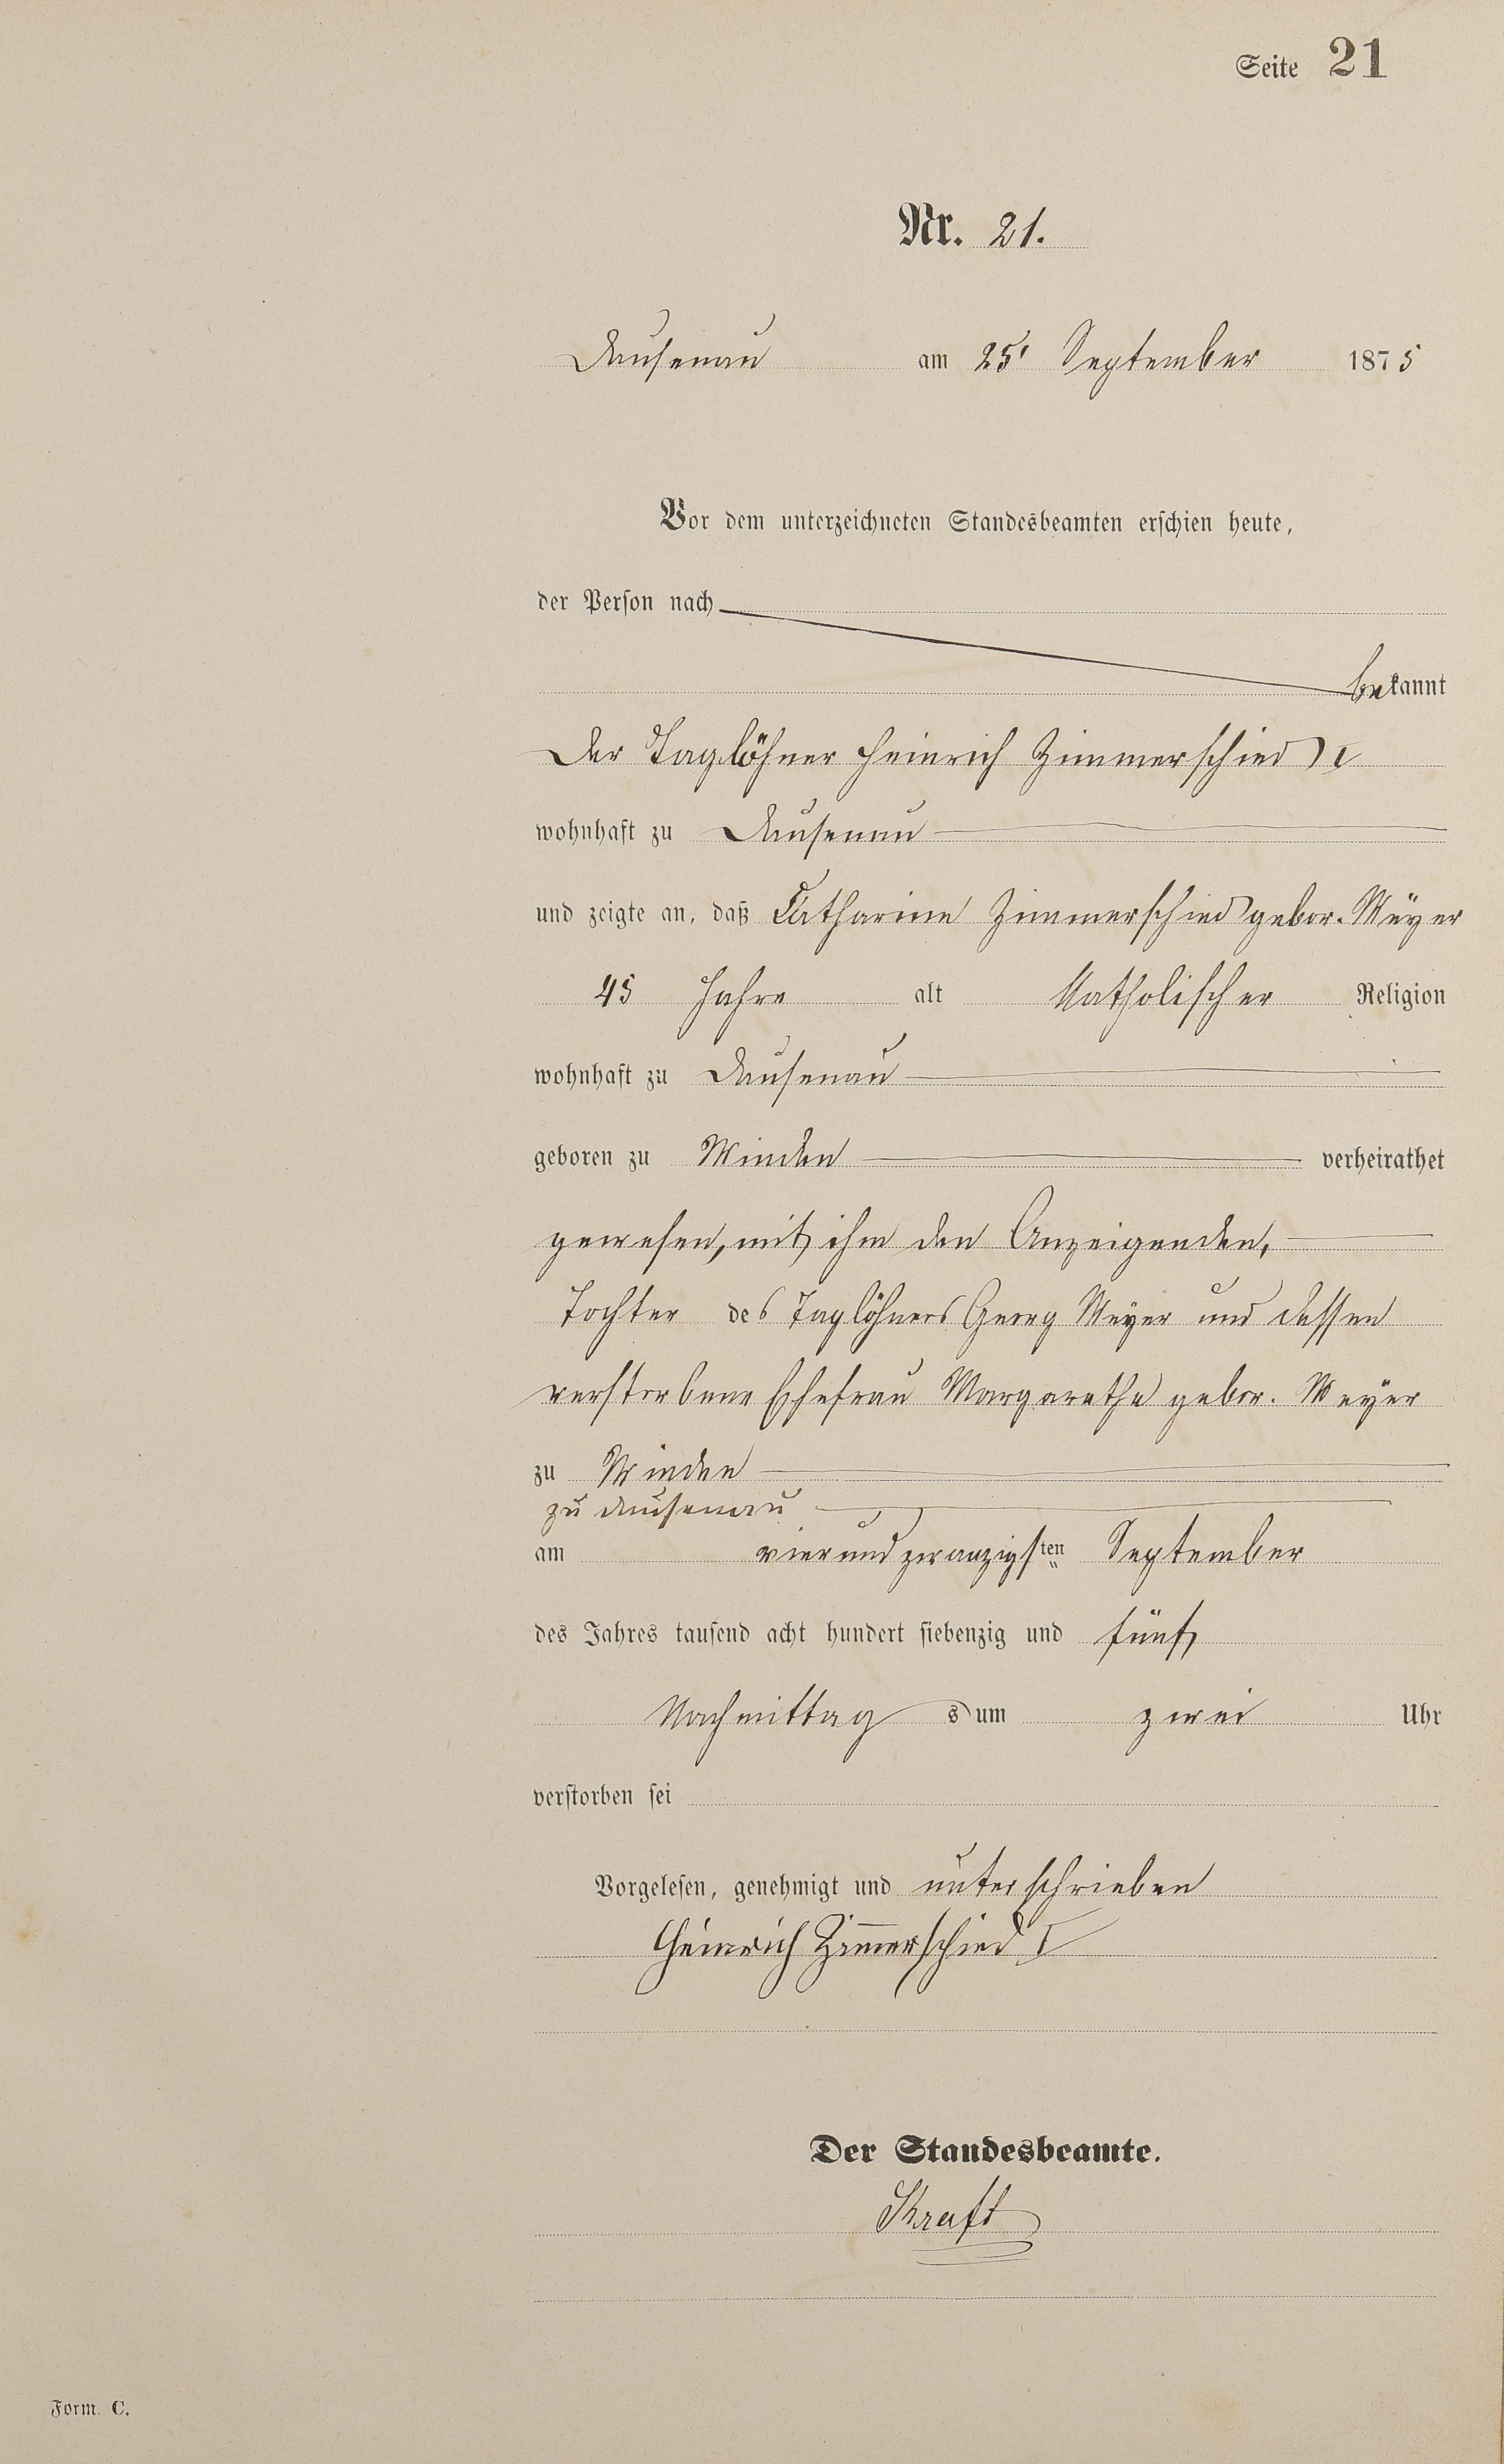 Seite 21
Nr. 21.
Dausenau am 25' September 1875
Vor dem unterzeichneten Standesbeamten erschien heute,
der Person nach
bekannt
Der Taglöhner Heinrich Zimmerschied I
wohnhaft zu Dausenau
und zeigte an, daß Catharine Zimmerschied gebor. Meÿer
45 Jahre alt Katholischer Religion
wohnhaft zu Dausenau
geboren zu Winden verheirathet
gewesen, mit ihm den Anzeigenden,
Tochter des Taglöhners Georg Meÿer und dessen
verstorbene Ehefrau Margarethe gebor. Meÿer
zu Winden
zu Dausenau
am vierundzwanzigsten September
des Jahres tausend acht hundert siebenzig und fünf
Nachmittag s um zwei Uhr
verstorben sei
Vorgelesen, genehmigt und unterschrieben
Heinrich Zim̅erschied I
Der Standesbeamte.
Kraft
Form. C.